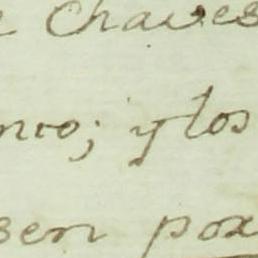 e Chaves
nco; y los
sen por